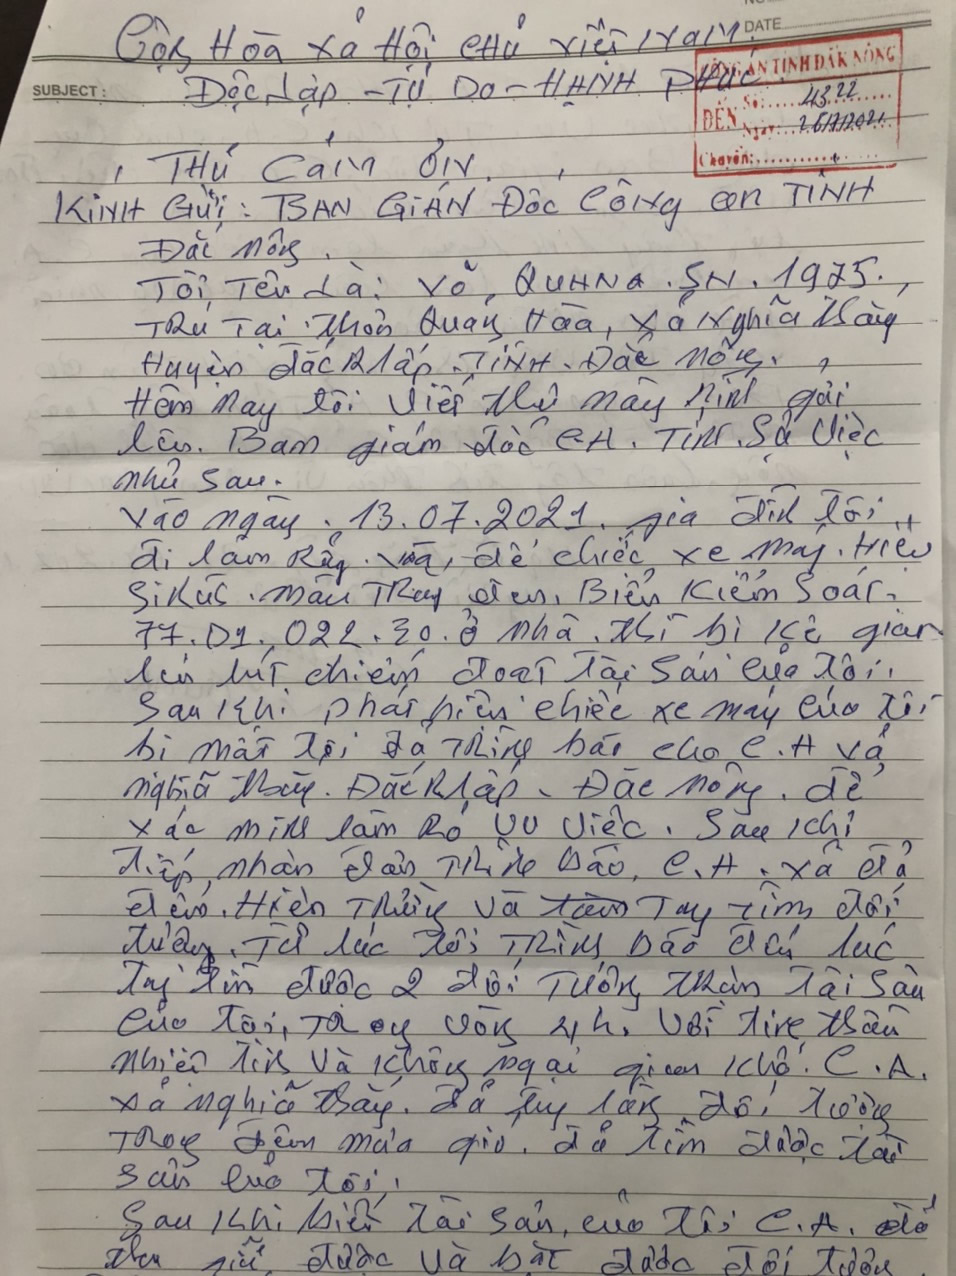 DATE
Cộng Hòa xả Hội chủ việt nam
SUBJECT :
Độc Lập - Tự Do - HẠNH PHÚC
CÔNG AN TỈNH ĐĂK NÔNG
ĐẾN Số: 4322
Ngày: 26/7/2021
Chuyển:
THƯ CẢM ƠN.
KíNH GửI: BAN GIÁN Đốc Công an TỈNH
Đắc Nông.
Tôi Tên Là: Võ, SN. 1975.
TRú Tại Thôn Quảng Hòa, xả Nghĩa Thắng
Huyện đắc Rlấp. TỈNH. Đắc Nông.
Hôm Nay tôi viết thư nầy kính gửi
lên. Ban giám đốc C.A. Tỉnh. Sự việc
như sau.
vào ngày. 13.07.2021. gia đình tôi
đi làm Rẫy. và, để chiếc xe máy. Hiệu
SiRUS. màu TRắng đen, Biển Kiểm Soát.
77.D1. 022.30. ở nhà. thì bị kẻ gian
lén lút chiếm đoạt Tài sản của tôi.
Sau khi phát hiện chiếc xe máy của tôi
bị mất tôi đả TRình báo cho C.A xả
nghĩa thắng. Đắc Rlấp. Đắc Nông. để
xác minh làm Rỏ vụ việc. Sau khi
tiếp nhận đơn TRình báo, C.A. xã đả
đến. Hiện TRường và Tay tìm đối
tượng. Từ lúc tôi TRình báo đến lúc
tìm được 2 đối Tượng Tài sản
của tôi, TRong vòng 4h. với tinh thần
nhiệt tình và không ngại gian khổ. C.A.
xả nghĩa thắng. đả truy lùng đối tượng
TRong đêm mưa gió. đả tìm được tài
sản của tôi.
Sau khi biết tài sản của tôi C.A. đả
thu giữ được và bắt được đối tượng